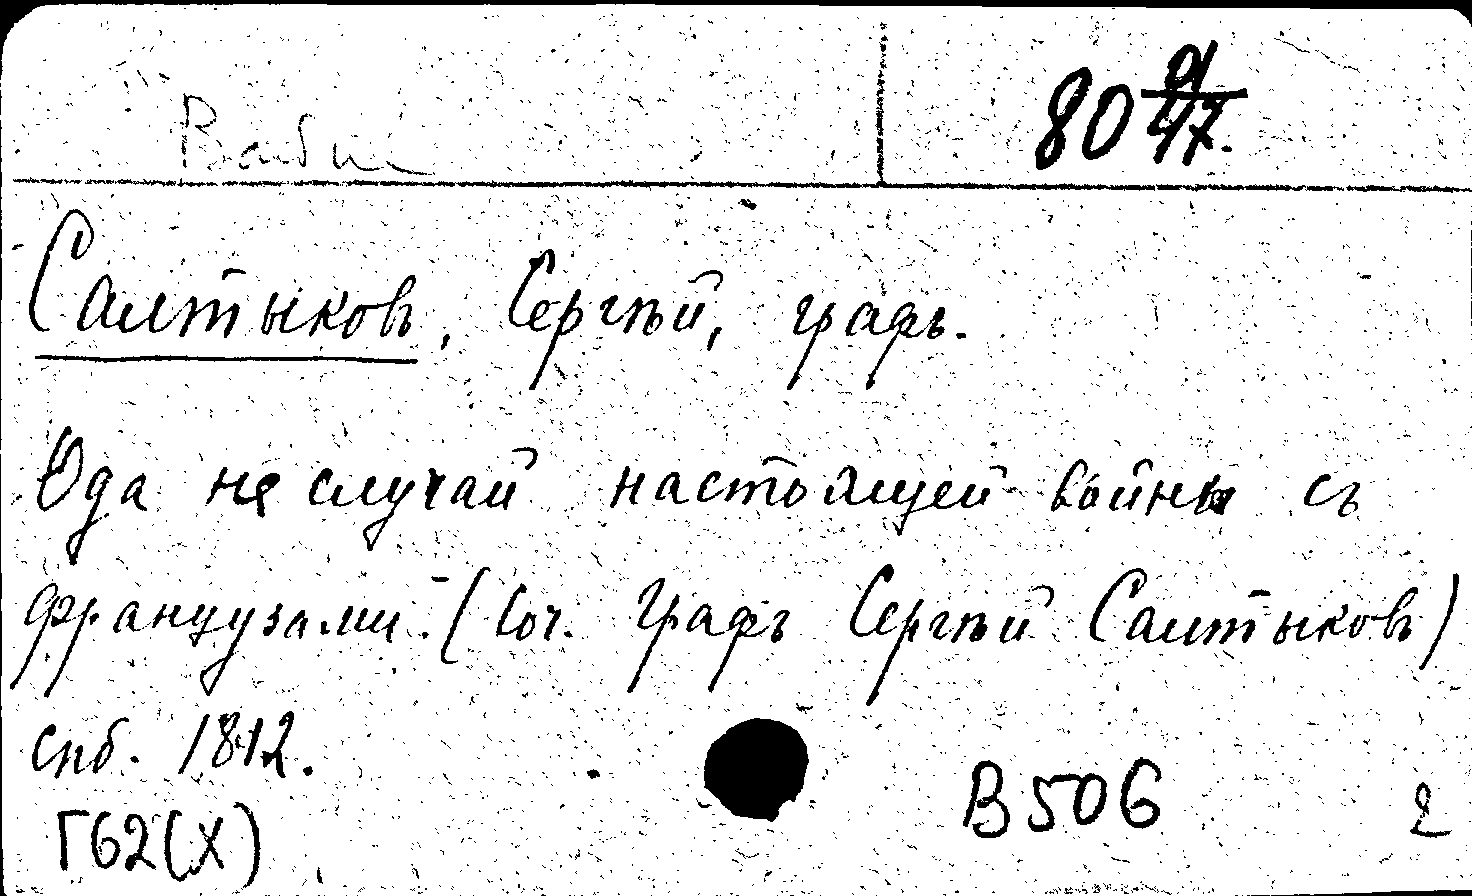 80
47.
Салтыковъ, Сергѣй, графъ.
Ода на случай настоящей войны съ
французами. (Соч. Графъ Сергѣй Салтыковъ)
спб. 1812.
Г62(X)
B506 2